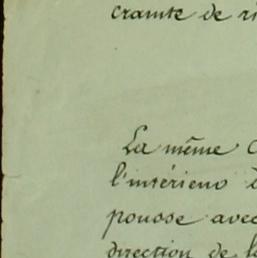 crainte de ri
La même c
l'intérieur d
pousse avec
direction de l